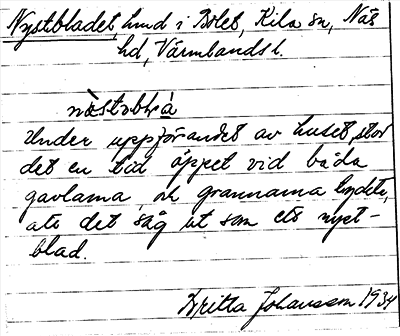 Nystbladet, hmd i Bolet, Kila sn, Näs
hd, Värmlands l.
Under uppförandet av huset, stod
det en tid öppet vid båda
gavlarna, och grannarna tyckte,
att det såg ut som ett nyst-
blad.
Britta Johansson 1934